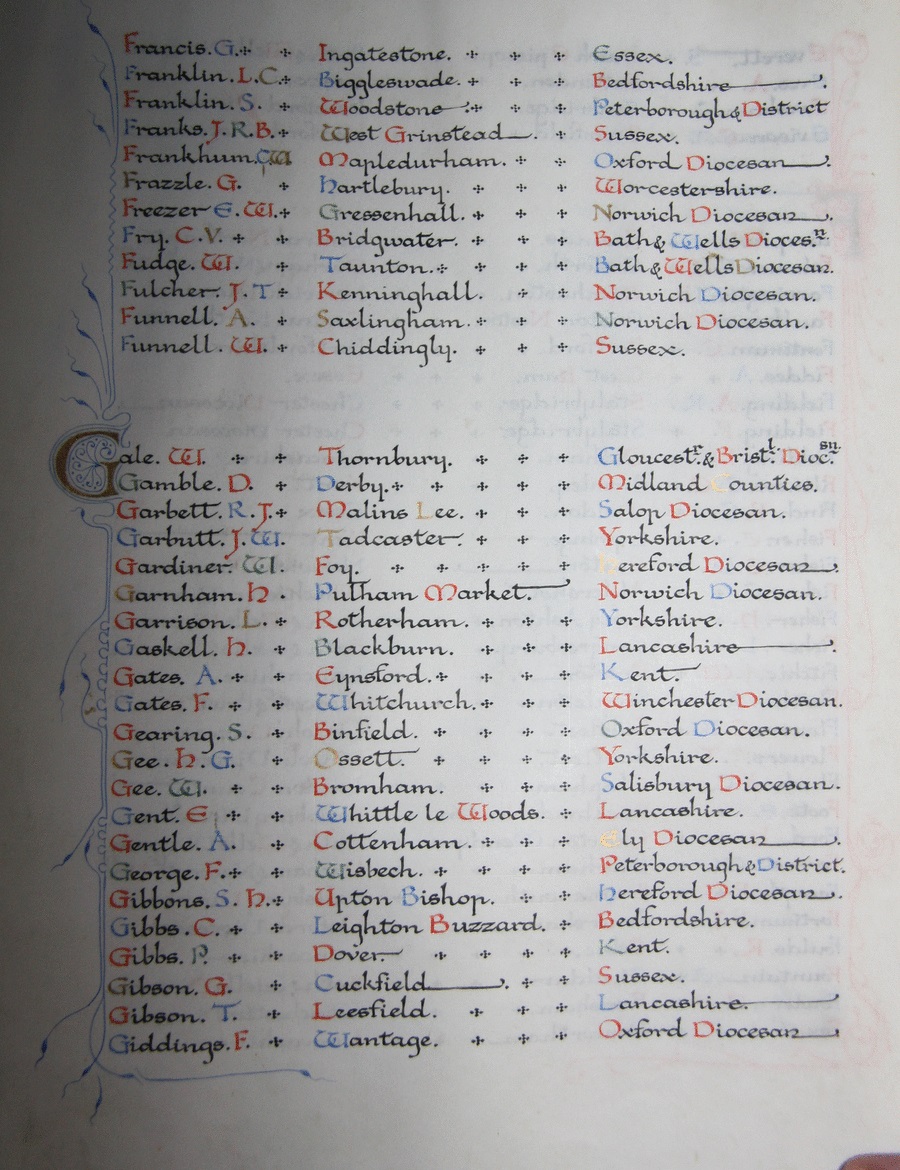 Francis. G. Ingatestone. Essex.
Franklin. L. C. Biggleswade. Bedfordshire.
Franklin. S. Woodstone. Peterborough & District
Franks. J. R. B. West Grinstead. Sussex.
Frankhum. W Mapledurham. Oxford Diocesan.
Frazzle. G. Hartlebury. Worcestershire.
Freezer E. W. Gressenhall. Norwich Diocesan.
Fry. C. V. Bridgwater. Bath & Wells Dioces.n
Fudge. W. Taunton. Bath & Wells Diocesan.
Fulcher. J. T Kenninghall. Norwich Diocesan.
Funnell. A. Saxlingham. Norwich Diocesan.
Funnell. W. Chiddingly. Sussex.
Gale. W. Thornbury. Gloucest.r & Brist.l Dioc.sn.
Gamble. D. Derby. Midland Counties.
Garbett. R. J. Malins Lee. Salop Diocesan.
Garbutt. J. W. Tadcaster. Yorkshire.
Gardiner. W. Foy. Hereford Diocesan.
Garnham. H. Pulham Market. Norwich Diocesan.
Garrison. L. Rotherham. Yorkshire.
Gaskell. H. Blackburn. Lancashire.
Gates. A. Eynsford. Kent.
Gates. F. Whitchurch. Winchester Diocesan.
Gearing. S. Binfield. Oxford Diocesan.
Gee. H. G. Ossett. Yorkshire.
Gee. W. Bromham. Salisbury Diocesan.
Gent. E Whittle le Woods. Lancashire.
Gentle. A. Cottenham. Ely Diocesan.
George. F. Wisbech. Peterborough & District.
Gibbons. S. H. Upton Bishop. Hereford Diocesan.
Gibbs. C. Leighton Buzzard. Bedfordshire.
Gibbs. P. Dover. Kent.
Gibson. G. Cuckfield. Sussex.
Gibson. T. Leesfield. Lancashire.
Giddings. F. Wantage. Oxford Diocesan.